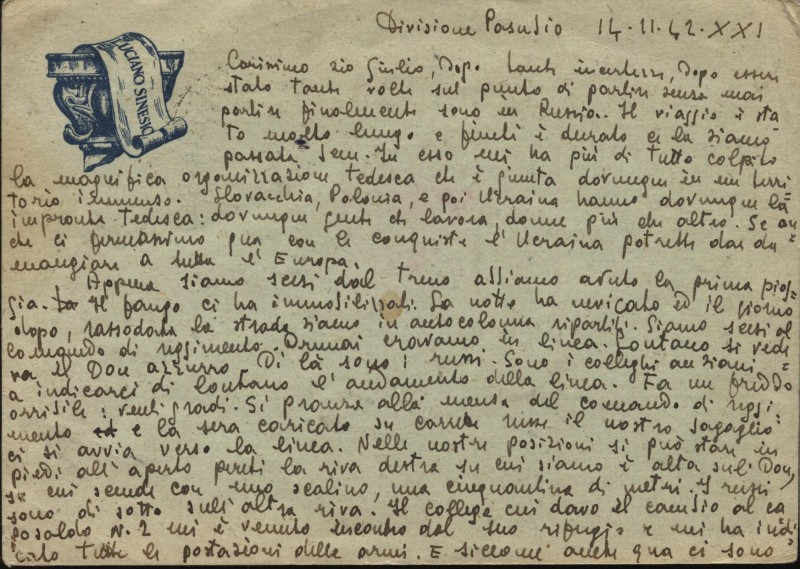 Divisione Pasubio 14.11.42.XXI
LUCIANO SINESIO
Carissimo zio Giulio, Dopo tante incertezze, Dopo essere
stato tante volte sul punto di partire senza mai
partire finalmente sono in Russia. Il viaggio è sta
to molto lungo e finchè è durato ce la siamo
passata bene. In esso mi ha più di tutto colpito
la magnifica organizzazione tedesca che è giunta dovunque in un terri
torio immenso. Slovacchia, Polonia, e poi Ucraina hanno dovunque la
impronta tedesca: dovunque gente che lavora, donne più che altro. Se an
che ci fermassimo qua con le conquiste l'Ucraina potrebbe dar da
mangiare a tutta l'Europa.
Appena siamo scesi dal treno abbiamo avuto la prima piog-
gia. Il fango ci ha immobilizzati. La notte ha nevicato ed il giorno
dopo, rassodata la strada siamo in autocolonna ripartiti. Siamo scesi al
comando di reggimento. Ormai eravamo in linea. Lontano si vede
va il Don azzurro. Di là sono i russi. Sono i colleghi anziani
a indicarci di lontano l'andamento della linea. Fa un freddo
orribile: venti gradi. Si pranza alla mensa del comando di reggi-
mento e la sera caricato su carrette russe il nostro bagaglio
ci si avvia verso la linea. Nelle nostre posizioni si può stare in
piedi all'aperto perchè la riva destra su cui siamo è alta sul Don,
su cui scende con uno scalino, una cinquantina di metri. I russi
sono di sotto sull'altra riva. Il collega cui davo il cambio al ca
posaldo N. 2 mi è venuto incontro dal suo rifugio e mi ha indi
cato tutte le postazioni delle armi. E siccome anche qua ci sono